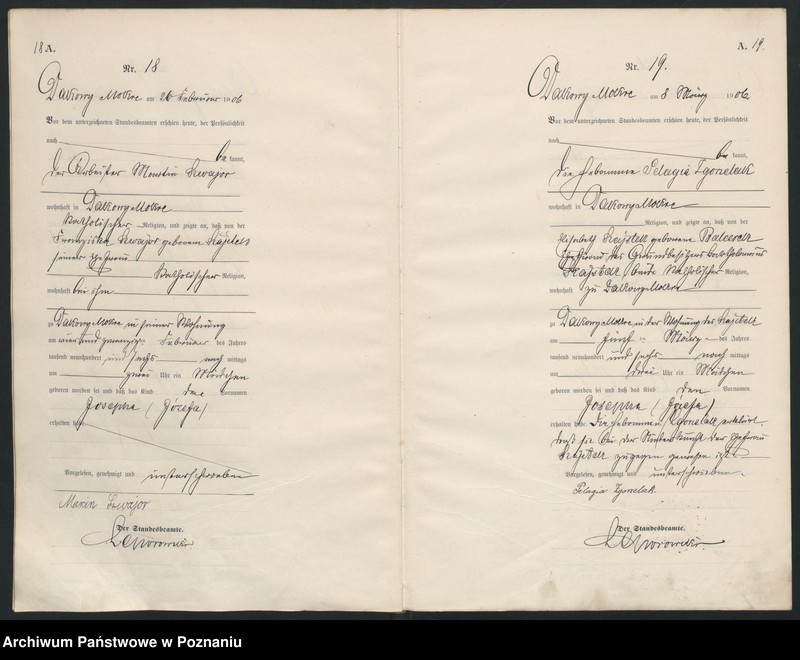 18 A.
Nr. 18
Dalkowy Mokre am 26 Februar 1906
Vor dem unterzeichneten Standesbeamten erschien heute, der Persönlichkeit
nach
be kannt,
der Arbeiter
wohnhaft in Dalkowy Mokre
katholischer Religion, und zeigte an, daß von der
geborenen
seiner Ehefrau
katholischer Religion,
wohnhaft bei ihm
zu Dalkowy Mokre in seiner Wohnung
am zwanzig Februar des Jahres
tausend neunhundert und sechs nach mittags
um Uhr ein Mädchen
geboren worden sei und daß das Kind den Vornamen
Josepha (Józefa)
erhalten habe.
Vorgelesen, genehmigt und unterschrieben
Der Standesbeamte.
A. 19.
Nr. 19.
Dalkowy Mokre am 8 März 1906
Vor dem unterzeichneten Standesbeamten erschien heute, der Persönlichkeit
nach
be kannt,
die Hebamme Pelagia Zgorzelak
wohnhaft in Dalkowy Mokre
Religion, und zeigte an, daß von der
Elisabeth geborenen
Ehefrau des Grundbesitzers
beide katholischer Religion,
wohnhaft zu Dalkowy Mokre
zu Dalkowy Mokre in der Wohnung des
am fünf März des Jahres
tausend neunhundert und sechs nach mittags
um drei Uhr ein Mädchen
geboren worden sei und daß das Kind den Vornamen
Josepha (Józefa)
erhalten habe. Die Hebamme Zgorzelak erklärt,
daß sie bei der Niederkunft der Ehefrau
zugegen gewesen ist.
Vorgelesen, genehmigt und unterschrieben.
Pelagia Zgorzelak.
Der Standesbeamte.
Archiwum Państwowe w Poznaniu